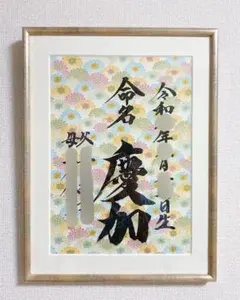 令和 年 月 日生
命名
慶加
父
母